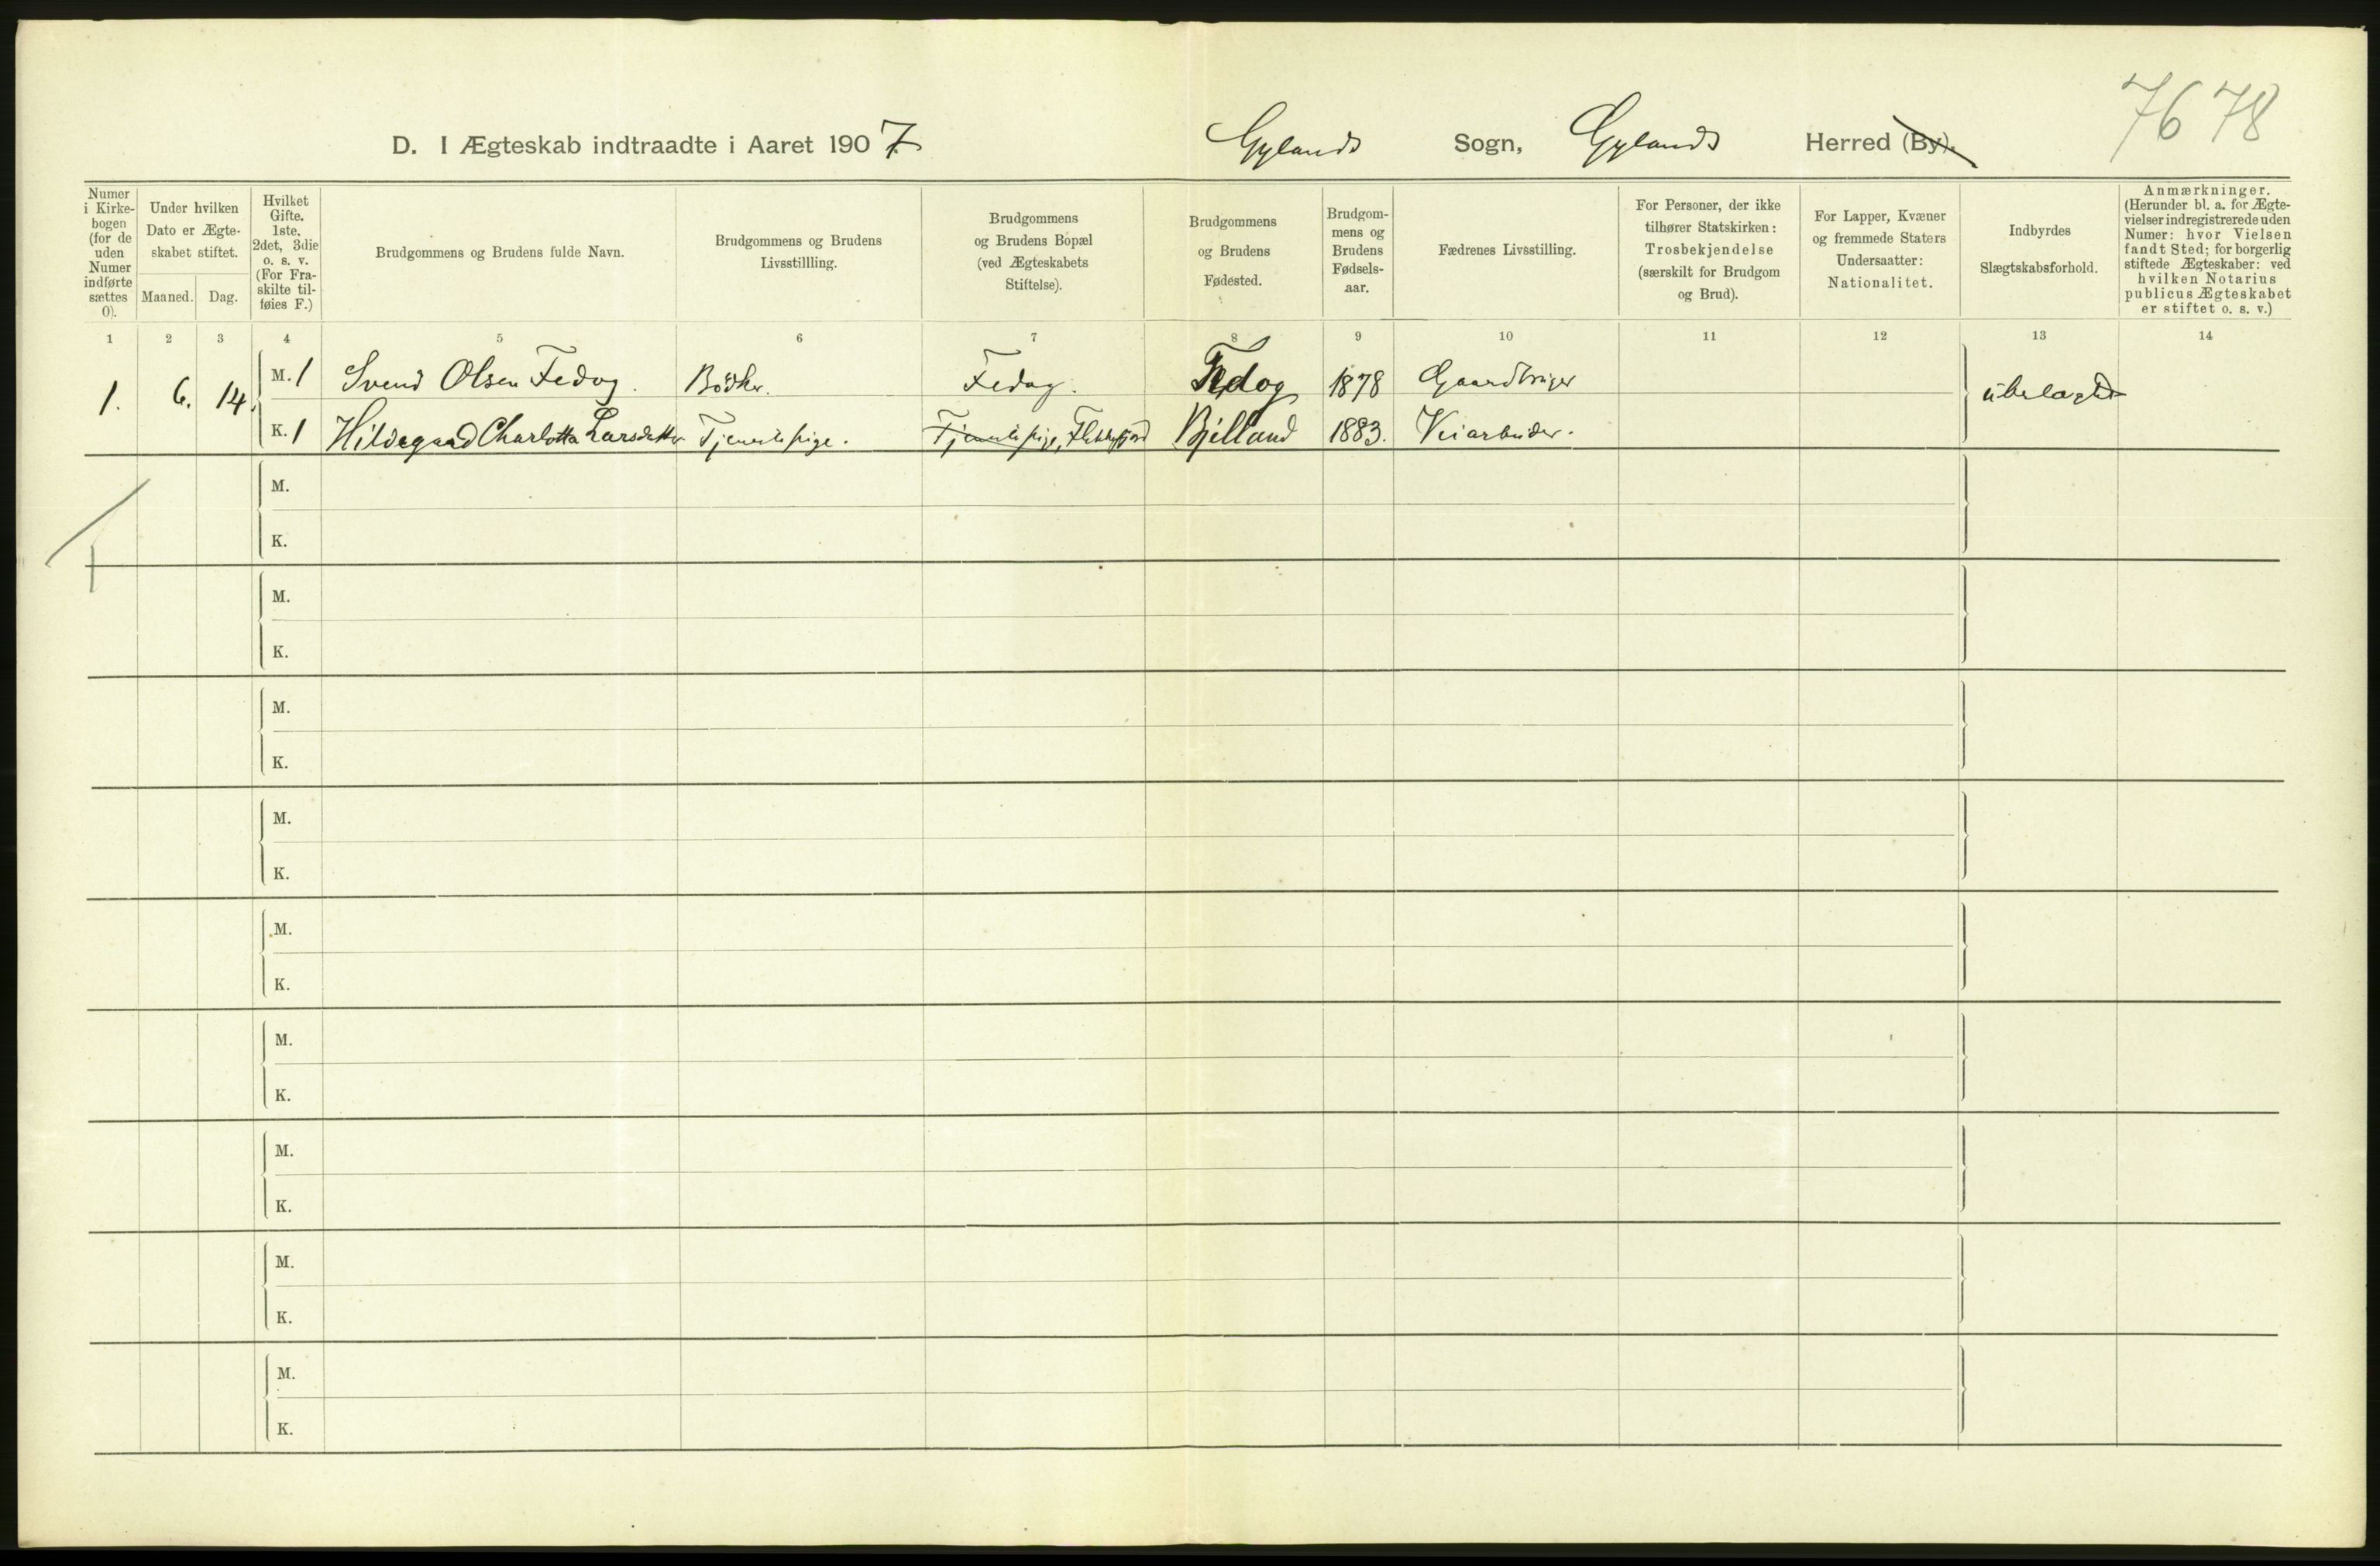 76 78
D. I Ægteskab indtraadte i Aaret 1907. Gylands Sogn, Gylands Herred (By).
Numer i Kirke-bogen (for de uden Numer indførte sættes 0).
Under hvilken Dato er Ægte-skabet stiftet.
Maaned. Dag.
Hvilket Gifte. 1ste, 2det, 3die o. s. v. (For Fra-skilte til-føies F.)
Brudgommens og Brudens fulde Navn.
Brudgommens og Brudens Livsstillling.
Brudgommens og Brudens Bopæl (ved Ægteskabets Stiftelse).
Brudgommens og Brudens Fødested.
Brudgom-mens og Brudens Fødsels-aar.
Fædrenes Livsstilling.
For Personer, der ikke tilhører Statskirken: Trosbekjendelse (særskilt for Brudgom og Brud).
For Lapper, Kvæner og fremmede Staters Undersaatter: Nationalitet.
Indbyrdes Slægtskabsforhold.
Anmærkninger. (Herunder bl. a. for Ægte-vielser indregistrerede uden Numer: hvor Vielsen fandt Sted; for borgerlig stiftede Ægteskaber: ved hvilken Notarius publicus Ægteskabet er stiftet o. s. v.)
1 2 3 4 5 6 7 8 9 10 11 12 13 14
1. 6. 14. M. 1 Svend Olsen Fedog. Bödker. Fedog. Fedog 1878 Gaardbruger ubelagtet
K. 1 Hildegaard Charlotta Larsdatter Tjenestepige. Tjenestepige, Flekkefjord Bjelland 1883. Veiarbeider.
M.
K.
M.
K.
M.
K.
M.
K.
M.
K.
M.
K.
M.
K.
M.
K.
M.
K.